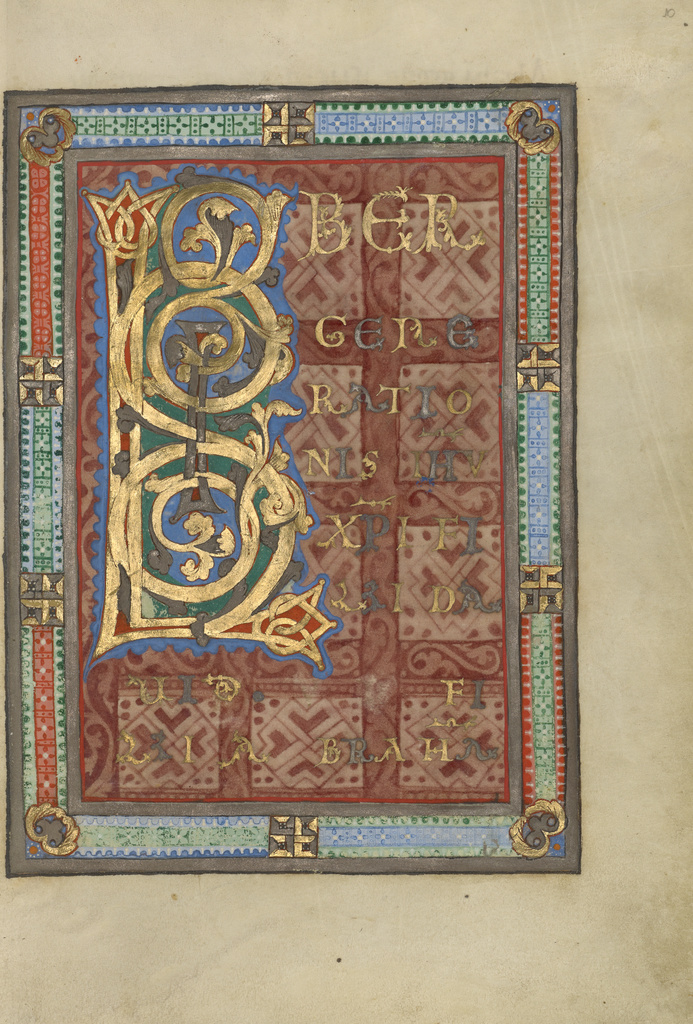 10
LIBER
GENE
RATIO
NIS IHV
XPI FI
LII DA
UID. FI
LII ABRAHA